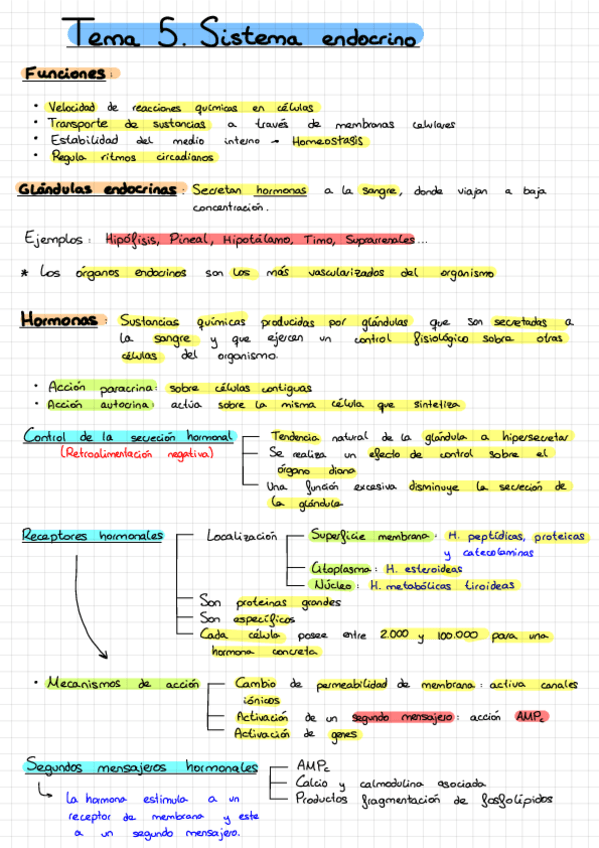 Tema 5. Sistema endocrino
Funciones:
• Velocidad de reacciones químicas en células
• Transporte de sustancias a través de membranas celulares
• Estabilidad del medio interno → Homeostasis
• Regula ritmos circadianos
Glándulas endocrinas: Secretan hormonas a la sangre, donde viajan a baja
concentración.
Ejemplos: Hipófisis, Pineal, Hipotálamo, Timo, Suprarrenales...
* Los órganos endocrinos son los más vascularizados del organismo
Hormonas: Sustancias químicas producidas por glándulas que son secretadas a
la sangre y que ejercen un control fisiológico sobre otras
células del organismo.
• Acción paracrina: sobre células contiguas
• Acción autocrina: actúa sobre la misma célula que sintetiza
Control de la secreción hormonal
(Retroalimentación negativa)
Tendencia natural de la glándula a hipersecretar
Se realiza un efecto de control sobre el
órgano diana
Una función excesiva disminuye la secreción de
la glándula
Receptores hormonales
Localización
Superficie membrana: H. peptídicas, proteicas
y catecolaminas
Citoplasma: H. esteroideas
Núcleo: H. metabólicas tiroideas
Son proteínas grandes
Son específicos
Cada célula posee entre 2.000 y 100.000 para una
hormona concreta
• Mecanismos de acción
Cambio de permeabilidad de membrana: activa canales
iónicos
Activación de un segundo mensajero: acción AMPc
Activación de genes
Segundos mensajeros hormonales
AMPc
Calcio y calmodulina asociada
Productos fragmentación de fosfolípidos
La hormona estimula a un
receptor de membrana y este
a un segundo mensajero.